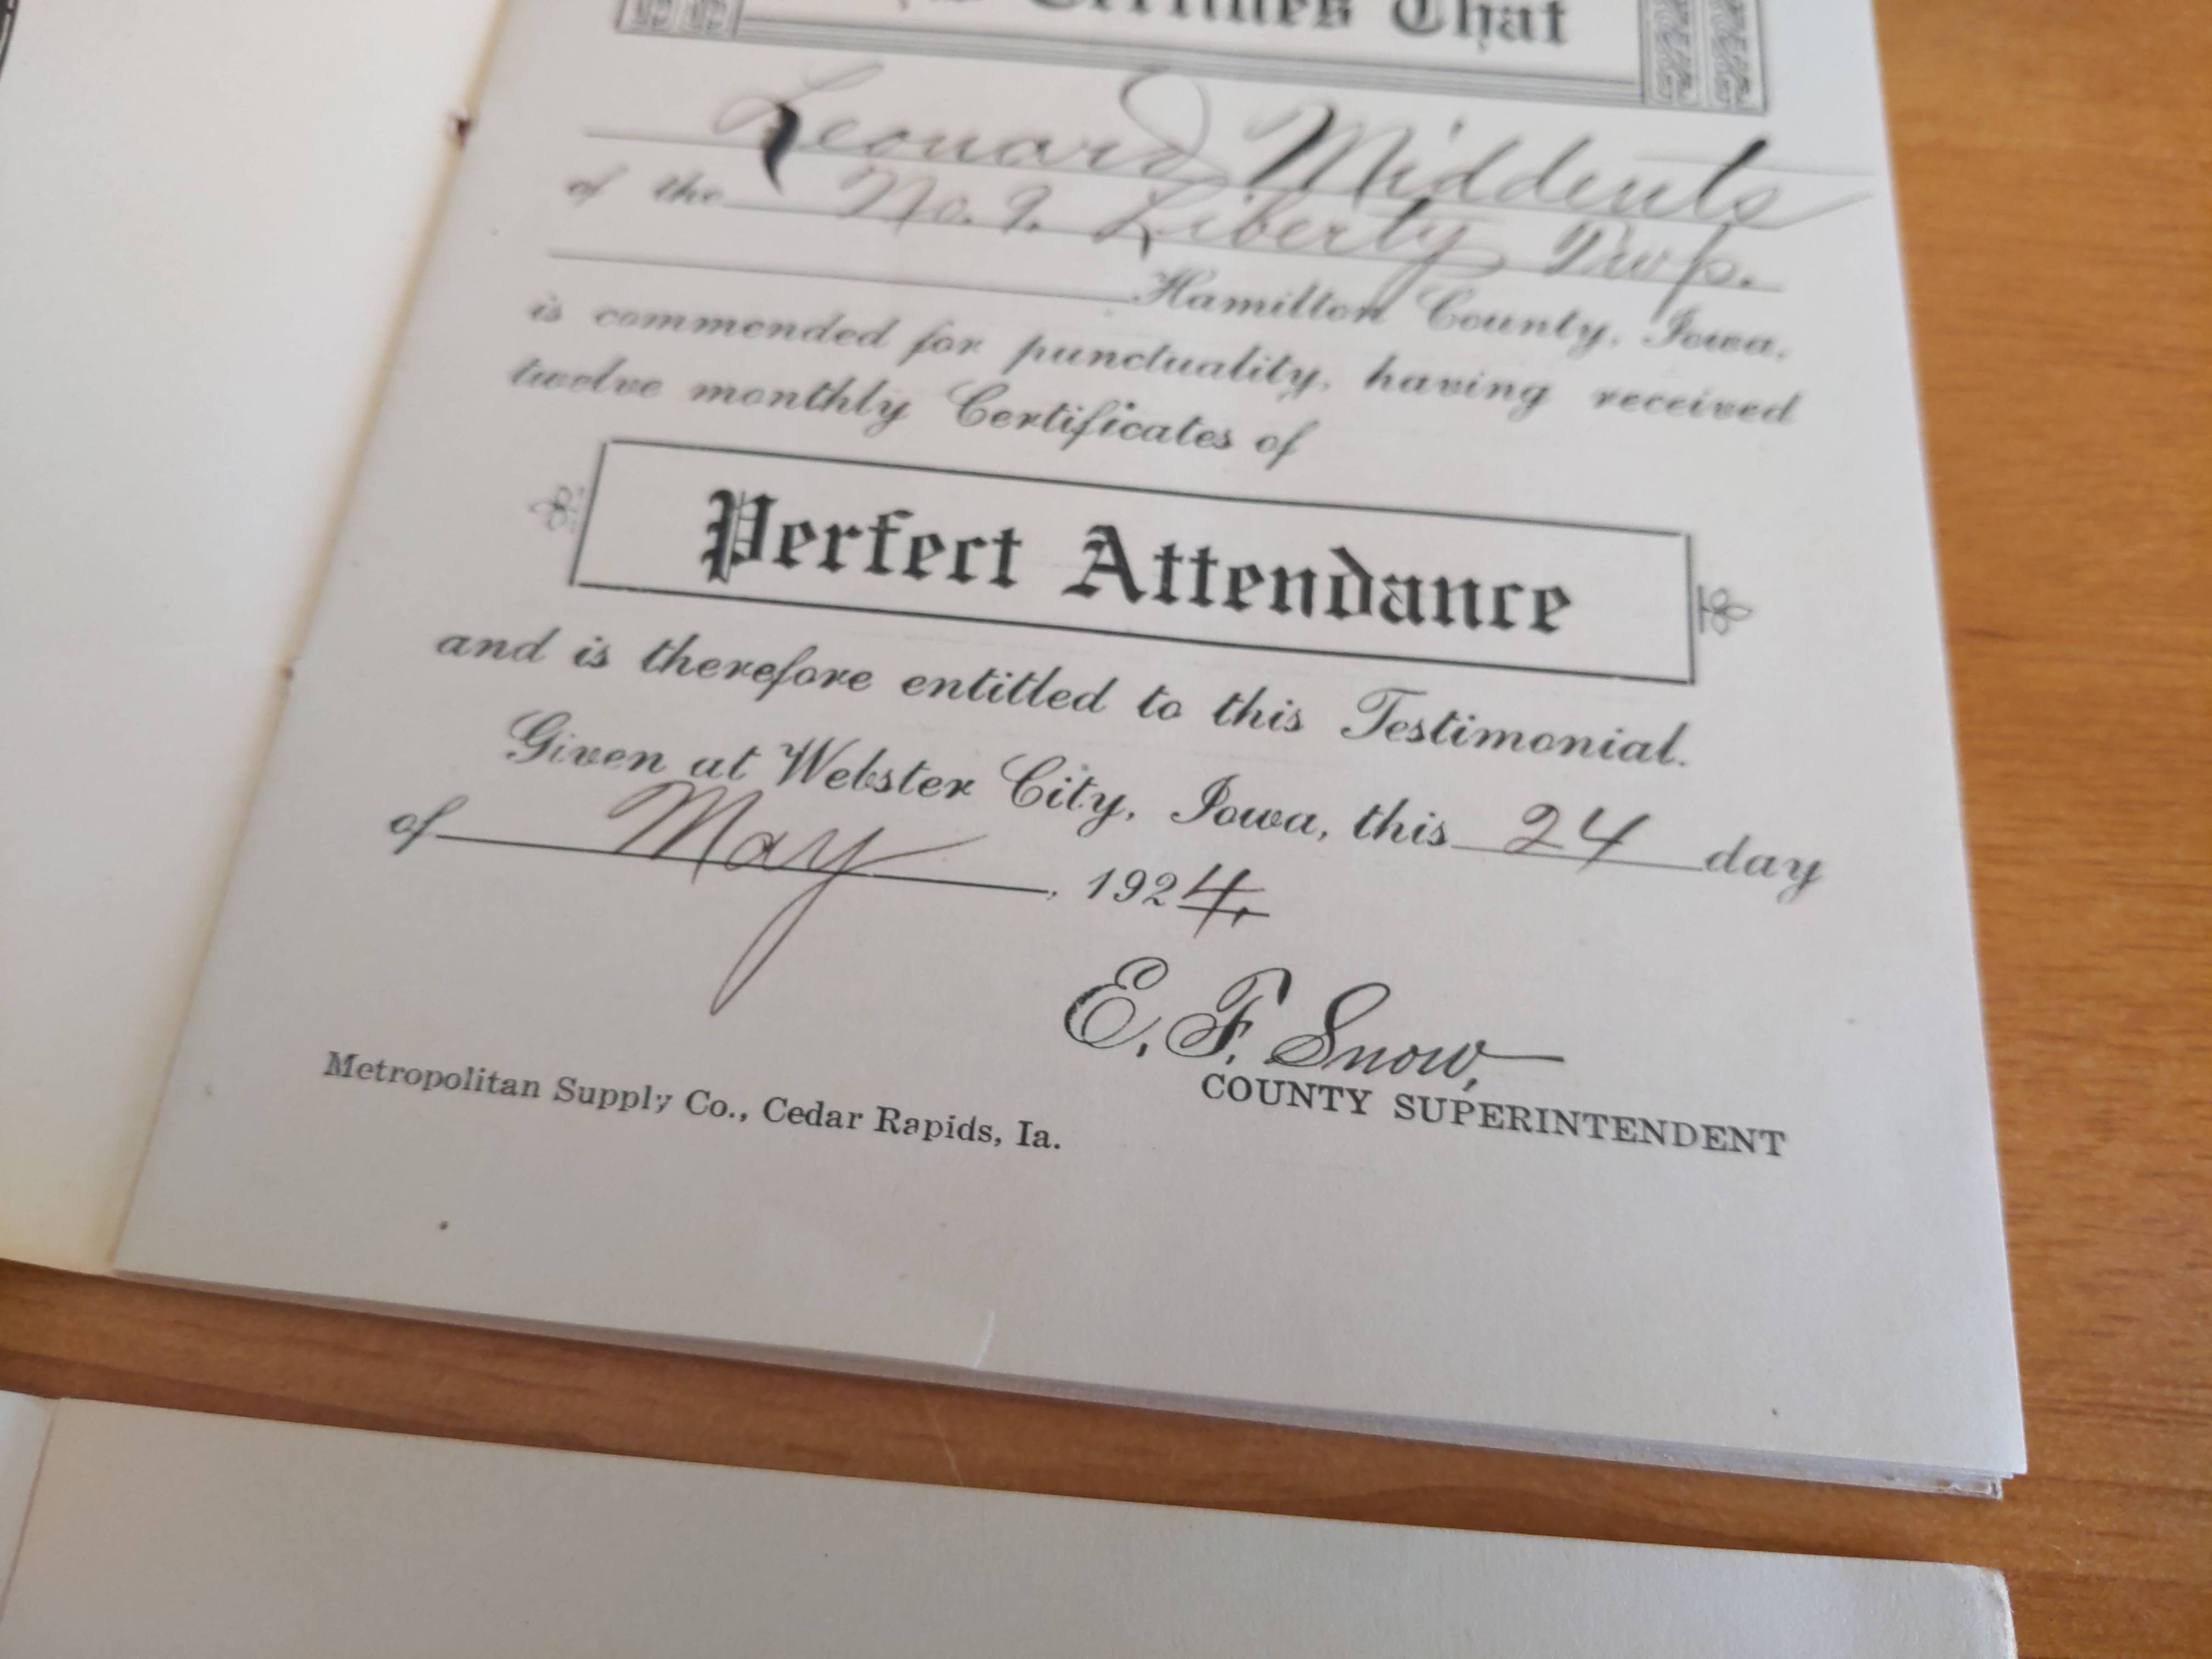 Certifies That
Leonard Middents
of the No. 9. Liberty Twp.
Hamilton County, Iowa,
is commended for punctuality, having received
twelve monthly Certificates of
Perfect Attendance
and is therefore entitled to this Testimonial.
Given at Webster City, Iowa, this 24 day
of May, 1924.
E. F. Snow,
COUNTY SUPERINTENDENT
Metropolitan Supply Co., Cedar Rapids, Ia.